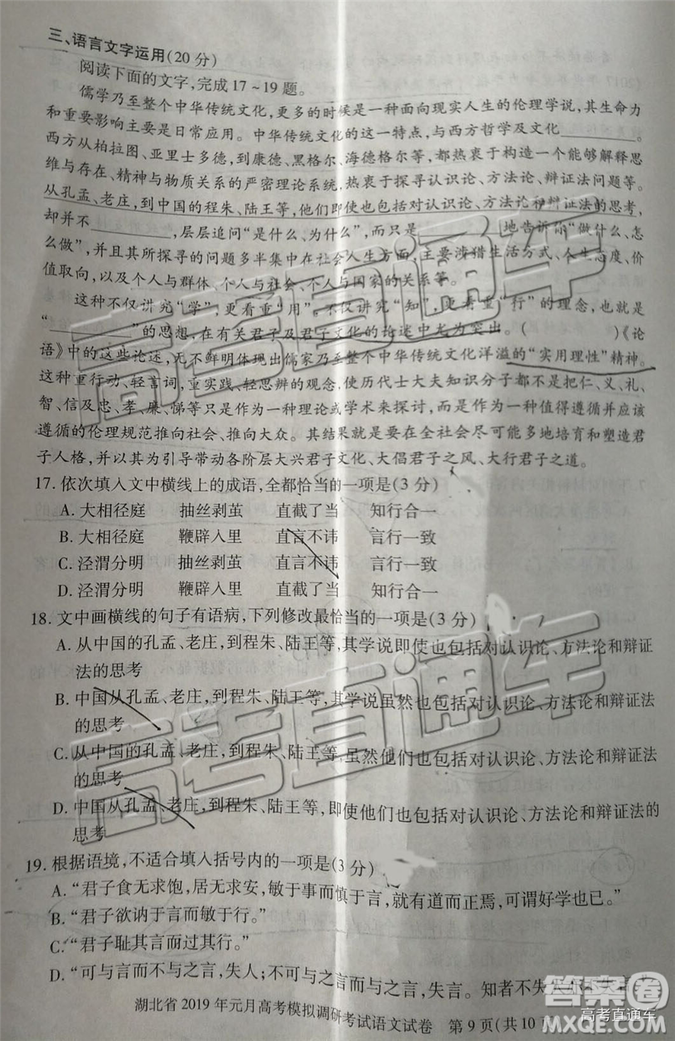 三、语言文字运用(20分)
阅读下面的文字,完成17~19题。
儒学乃至整个中华传统文化,更多的时候是一种面向现实人生的伦理学说,其生命力
和重要影响主要是日常应用。中华传统文化的这一特点,与西方哲学及文化________。
西方从柏拉图、亚里士多德,到康德、黑格尔、海德格尔等,都热衷于构造一个能够解释思
维与存在、精神与物质关系的严密理论系统,热衷于探寻认识论、方法论、辩证法问题等。
从孔孟、老庄,到中国的程朱、陆王等,他们即使也包括对认识论、方法论和辩证法的思考,
却并不________,层层追问“是什么、为什么”,而只是________地告诉你“做什么、怎
么做”,并且其所探寻的问题多半集中在社会人生方面,主要涉猎生活方式、个性态度、价
值取向,以及人与群体、个人与社会、个人与国家的关系等。
这种不仅讲究“学”,更看重“用”,不仅讲究“知”,更看重“行”的理念,也就是
“________”的思想,在有关君子及君子文化的论述中尤为突出。(        )《论
语》中的这些论述,无不鲜明体现出儒家乃至整个中华传统文化洋溢的“实用理性”精神。
这种重行动、轻言词,重实践、轻思辨的观念,使历代士大夫知识分子都不是把仁、义、礼、
智、信及忠、孝、廉、悌等只是作为一种理论或学术来探讨,而是作为一种值得遵循并应该
遵循的伦理规范推向社会、推向大众。其结果就是要在全社会尽可能多地培育和塑造君
子人格,并以其为引导带动各阶层大兴君子文化、大倡君子之风、大行君子之道。
17. 依次填入文中横线上的成语,全都恰当的一项是(3分)
A. 大相径庭 抽丝剥茧 直截了当 知行合一
B. 大相径庭 鞭辟入里 直言不讳 言行一致
C. 泾渭分明 抽丝剥茧 直言不讳 言行一致
D. 泾渭分明 鞭辟入里 直截了当 知行合一
18. 文中画横线的句子有语病,下列修改最恰当的一项是(3分)
A. 从中国的孔孟、老庄,到程朱、陆王等,其学说即使也包括对认识论、方法论和辩证
法的思考
B. 中国从孔孟、老庄,到程朱、陆王等,其学说虽然也包括对认识论、方法论和辩证法
的思考
C. 从中国的孔孟、老庄,到程朱、陆王等,虽然他们也包括对认识论、方法论和辩证法
的思考
D. 中国从孔孟、老庄,到程朱、陆王等,即使他们也包括对认识论、方法论和辩证法的
思考
19. 根据语境,不适合填入括号内的一项是(3分)
A. “君子食无求饱,居无求安,敏于事而慎于言,就有道而正焉,可谓好学也已。”
B. “君子欲讷于言而敏于行。”
C. “君子耻其言而过其行。”
D. “可与言而不与之言,失人;不可与言而与之言,失言。知者不失人
湖北省2019年元月高考模拟调研考试语文试卷 第9页(共10
高考直通车
高考直通车
答案圈
高考直通车
MXQE.COM